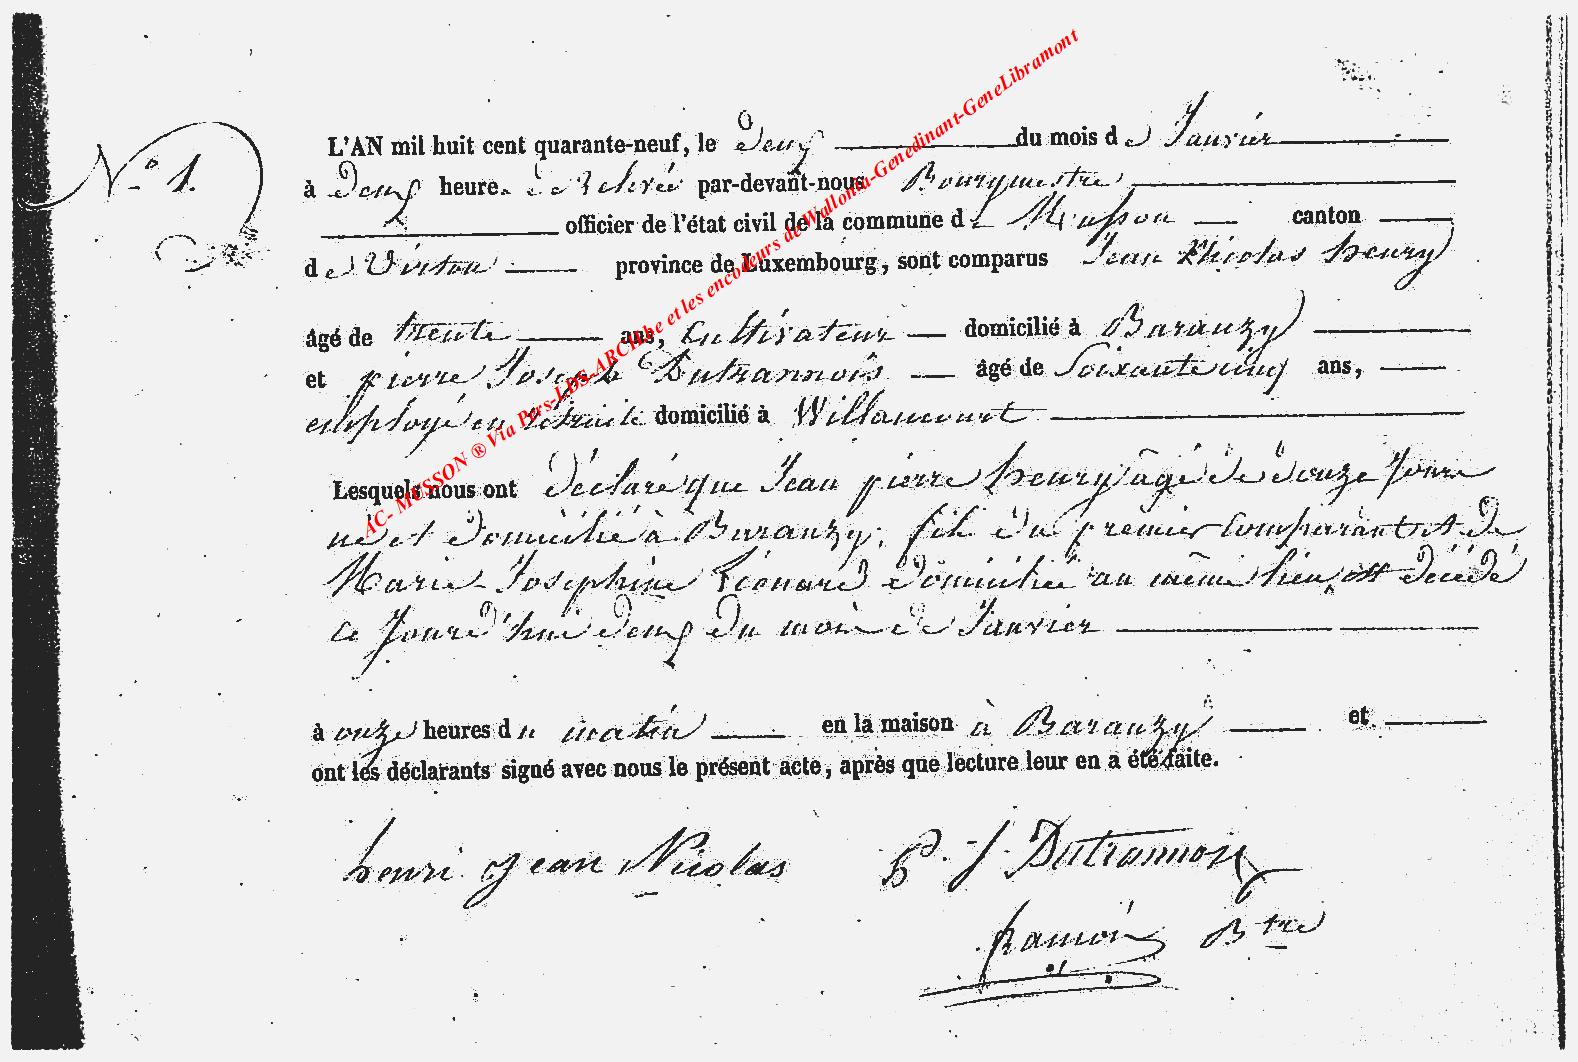 N.° 1.
L'AN mil huit cent quarante-neuf, le deux du mois de Janvier
à deux heure. de relevée par-devant-nous Bourgmestre
officier de l'état civil de la commune de Musson canton
de Virton province de Luxembourg, sont comparus Jean Nicolas henry
âgé de trente ans, Cultivateur domicilié à Baranzy
et pierre Joseph Dutrannois âgé de Soixante cinq ans,
employé en retraite domicilié à Willancourt
Lesquels nous ont déclaré que Jean pierre henry âgé de douze Jours
né et domicilié à Baranzy, fils du premier Comparant et de
Marie Josephine Lionard domiciliée au même lieu, est décédé
ce Jourd'hui deux du mois de Janvier
à onze heures du matin en la maison à Baranzy et
ont les déclarants signé avec nous le présent acte, après que lecture leur en a été faite.
henri Jean Nicolas P. J Dutrannois
hamòn Btre
AC- MUSSON ® Via Pers-LDS-ARCHbe et les encodeurs de Wallonia-Genedinant-GeneLibramont